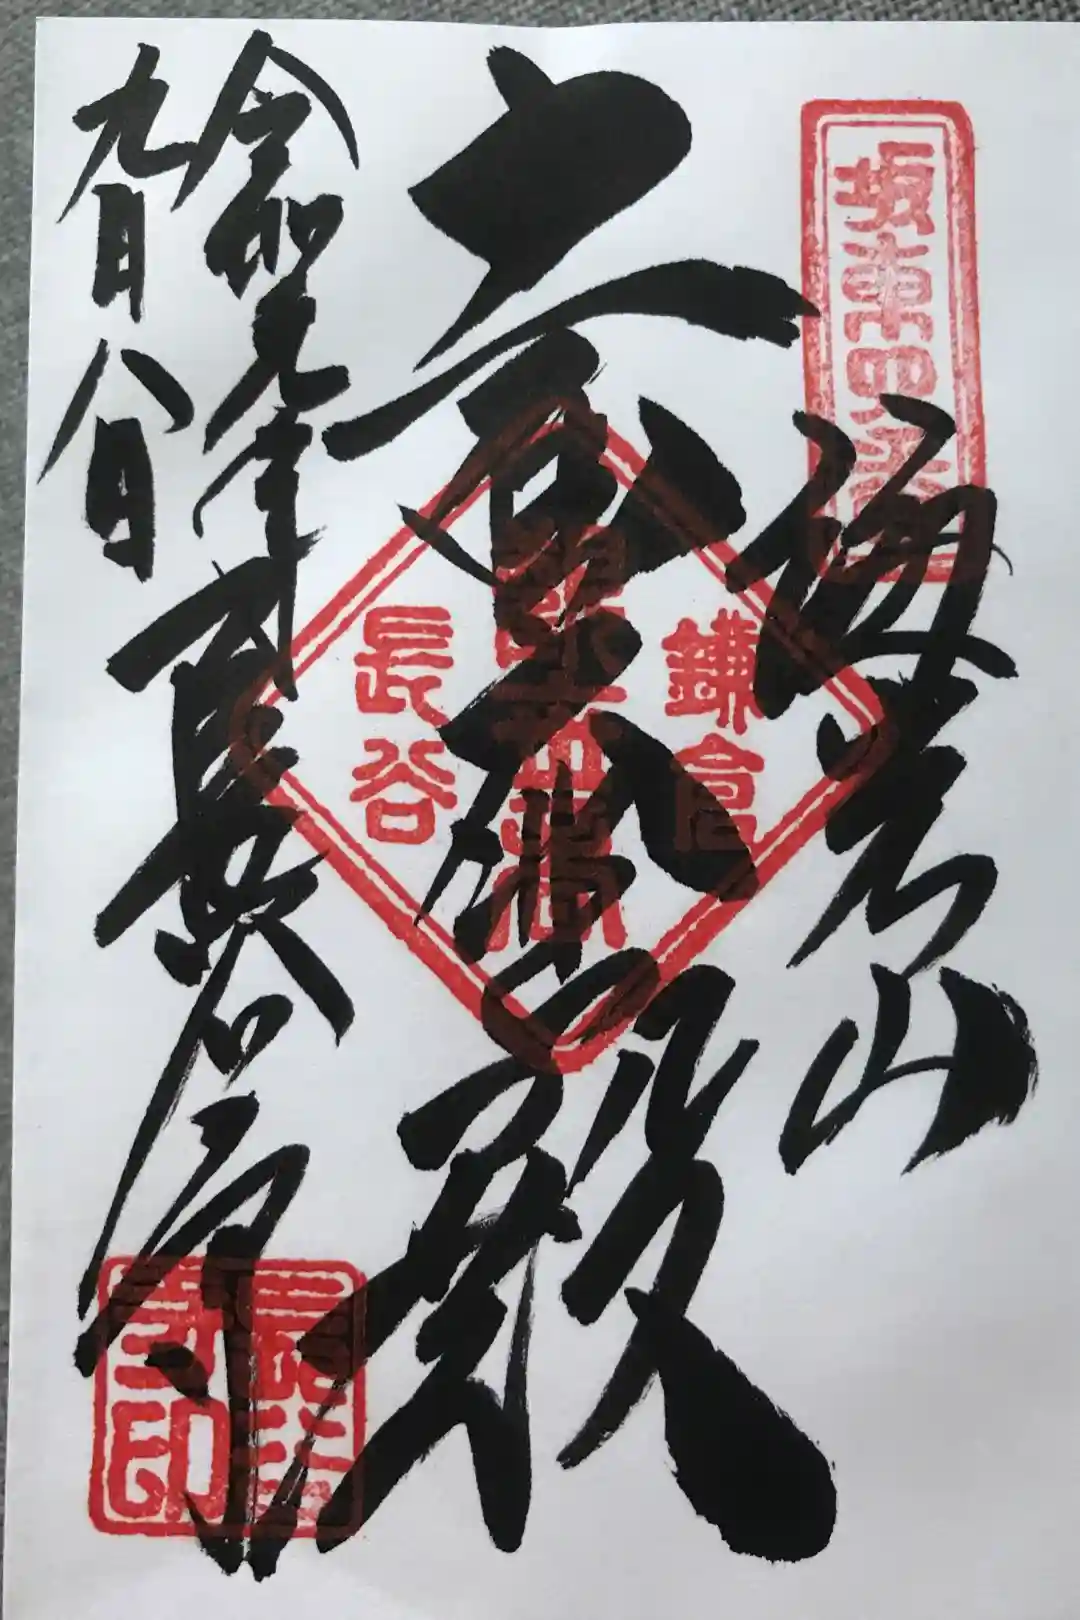 坂東四番
海光山
十一面大悲殿
鎌倉
長谷
令和元年
九月八日
長谷寺
長谷
寺印